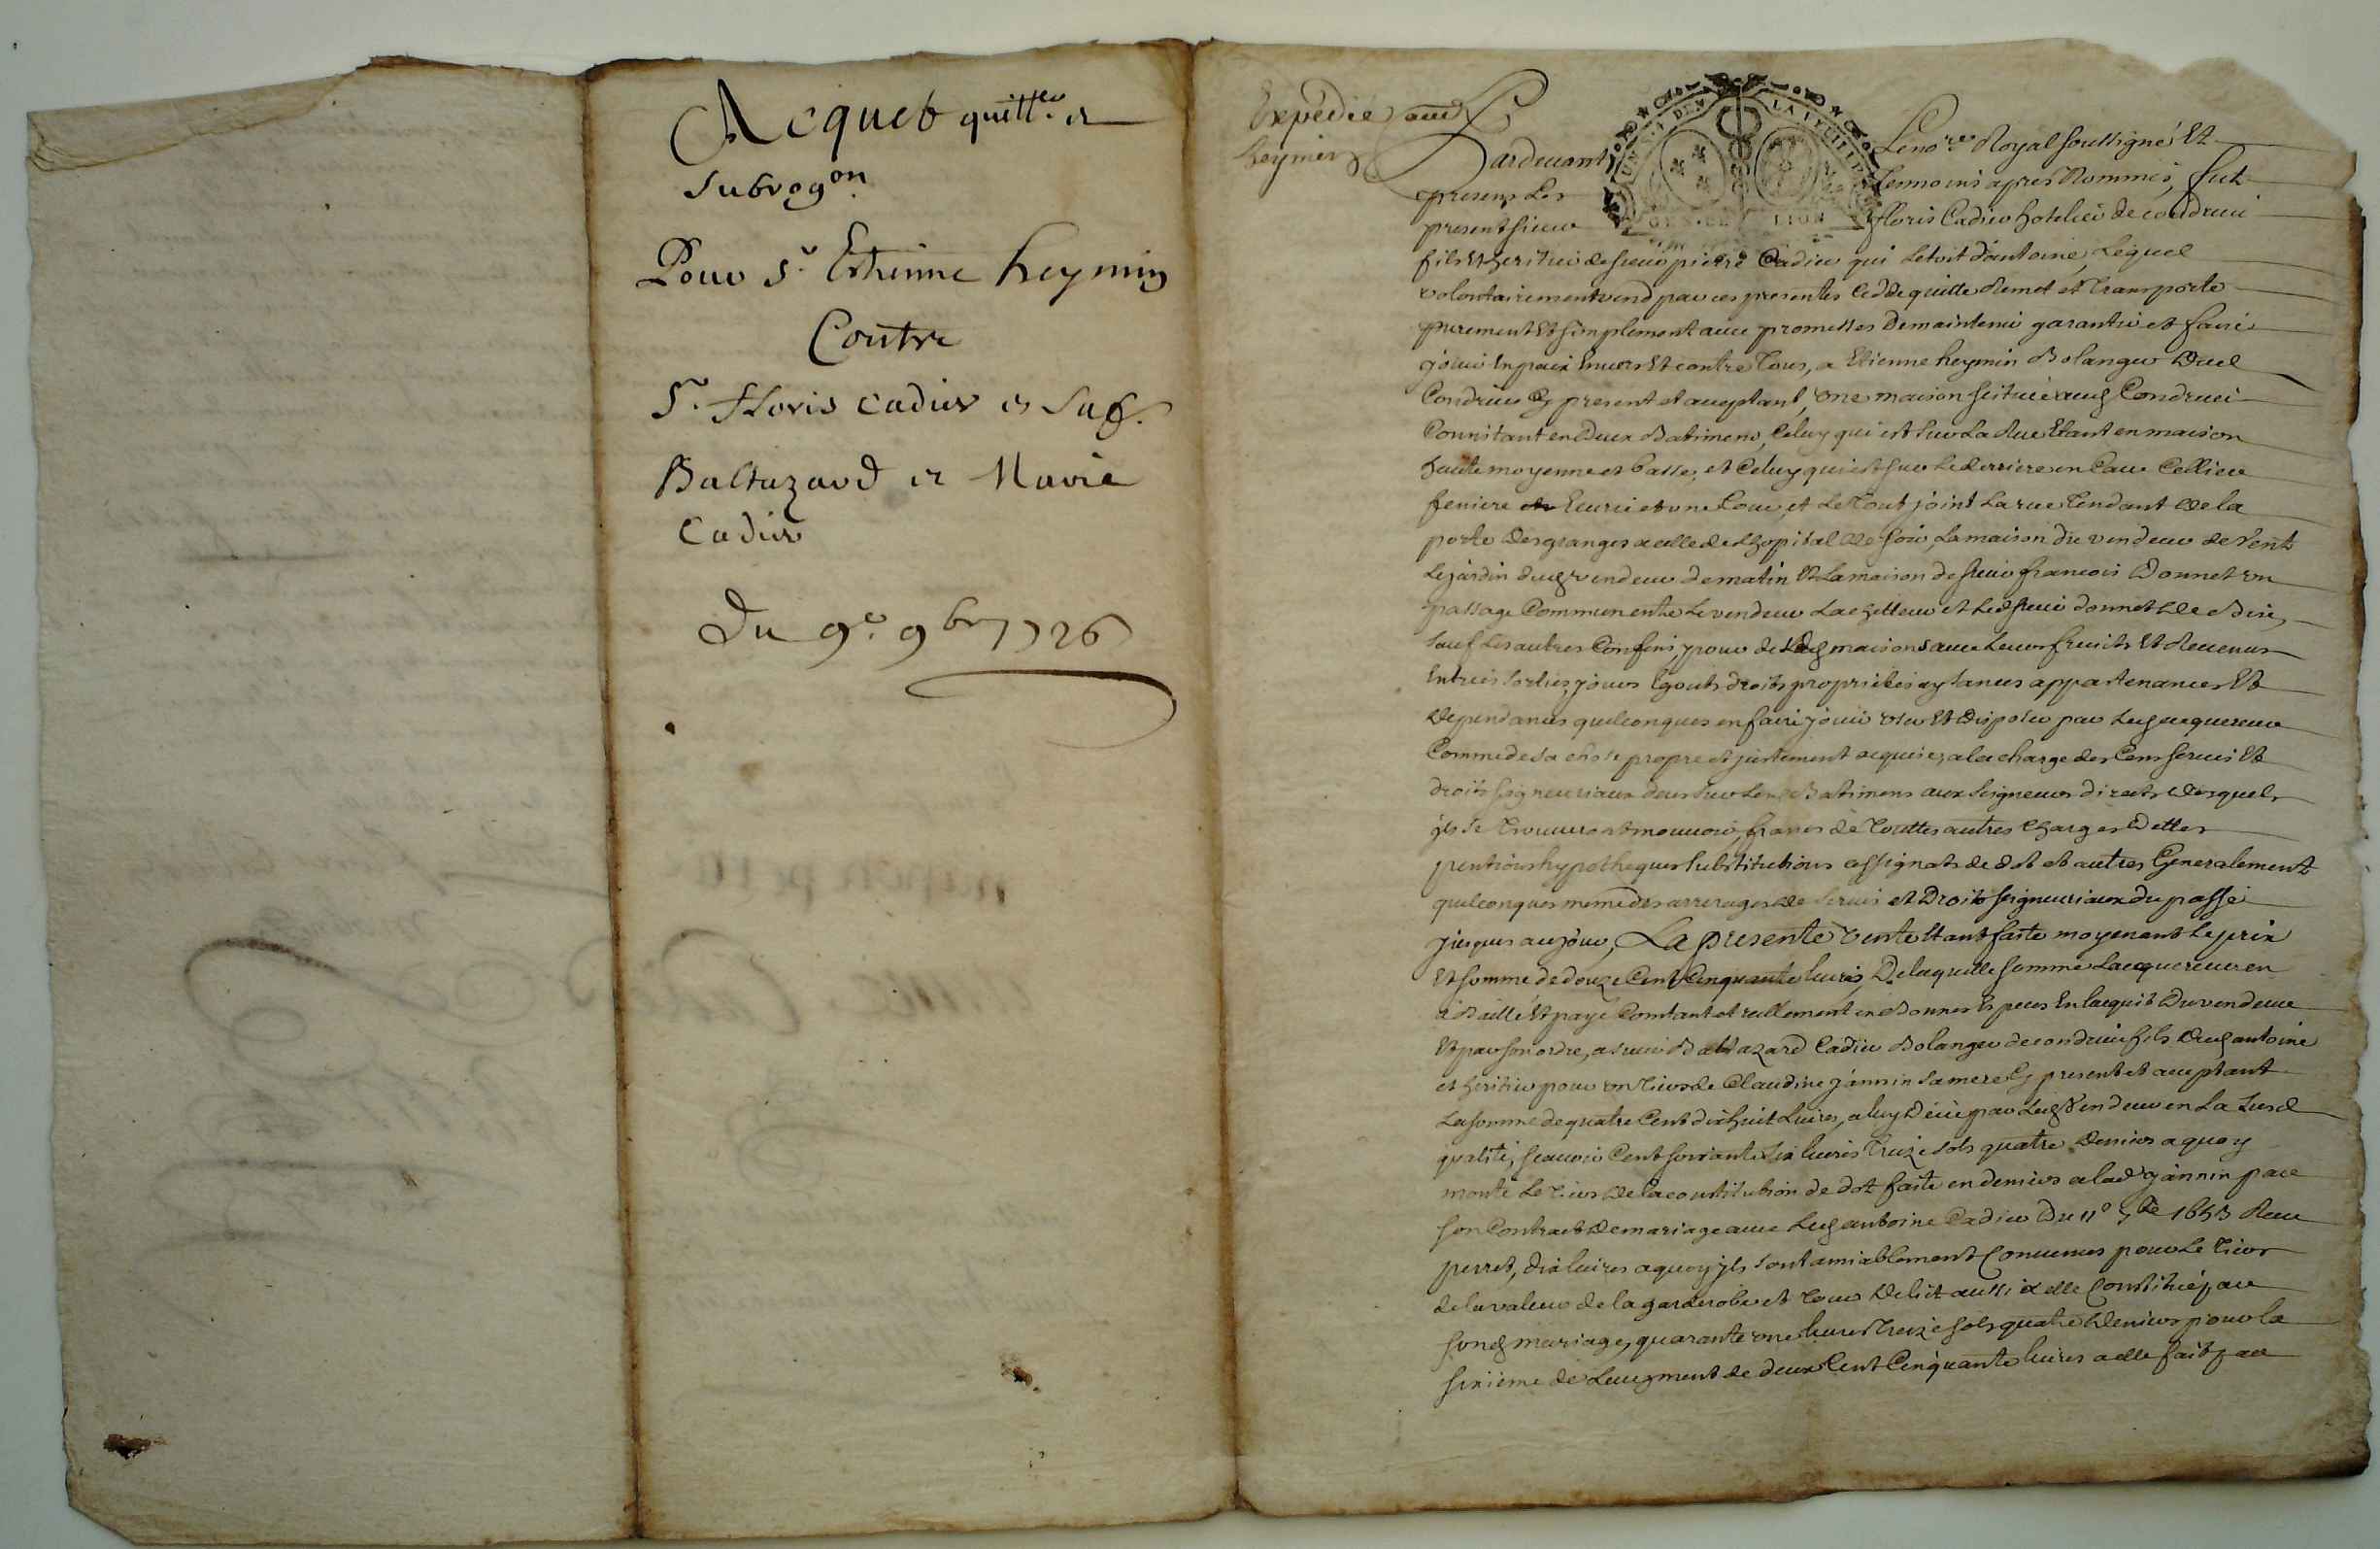 Acquet quitt.ce et
subrog.on
Pour S.r Ethienne heymin
Contre
S.r Floris Cadier et Sus.
Baltazard et Marie
Cadier
Du 9.e 9bre 1726
Expedié aud
heymin
Pardevant Le no.re Royal soussigné Et
presens Les temoins apres Nommés, fut
present sieur floris Cadier hotelier de condrieu
fils Et heritier de sieur pierre Cadier qui Letoit d'antoine, Lequel
volontairement vend par ces presentes Cedde quitte Remet et Transporte
purement Et simplement avec promesses De maintenir garantir et faire
jouir En paix Envers Et contre Tous, a Etienne heymin Bolanger Dud
Condrieu Cy present et acceptant, une maison scituée aud Condrieu
Consistant en Deux Batimens, Celuy qui est sur La Rue Etant en maison
haute moyenne et basse, et Celuy qui est sur Le derriere en Cave Cellier
feniere Ecurie et une Cour, et Le Tout joint La rue Tendant De la
porte Des granges a celle de L'hopital De soir, La maison du vendeur de vent
Le jardin dud vendeur de matin Et La maison de sieur francois Donnet un
passage Commun entre Le vendeur L'achetteur et Led sieur donnet De Bize,
sauf Les autres Confins, pour desd maisons avec Leurs fruits Et Revenus
Entrées sorties, jours Egouts droits proprietés aysances appartenances Et
Dependances quelconques en faire jouir user Et Disposer par Led acquereur
Comme de sa chose propre et justement acquise, a la charge des Cens servis Et
droits seigneuriaux deus sur Lesd Batimens aux seigneurs directs desquels
ils se Trouveront mouvoir, francs de Touttes autres Charges Dettes
pentions hypotheques substitutions assignats de dot et autres Generalement
quelconques meme des arrerages de servis et Droits seigneuriaux du passé
jusques au jour, La presente vente Etant faite moyenant Le prix
Et somme de douze Cent Cinquante Livres, De laquelle somme L'acquereur en
a Baillé Et payé Comtant et reellement en Bonnes Especes En l'acquit Du vendeur
Et par son ordre, a sieur Baltazard Cadier Bolanger de condrieu fils Dud antoine
et heritier pour un Tiers de Claudine jannin sa mere Cy present et acceptant
La somme de quatre Cent dix huit Livres, a luy Deüe par Led Vendeur en La susd
qualité, scavoir Cent soixante six Livres Treize sols quatre Deniers a quoy
monte Le Tiers De La constitution de dot faite en deniers a lad jannin par
son Contract De mariage avec Led antoine Cadier Du 11.e 7bre 1653 Receu
perret, dix Livres a quoy ils sont amiablement Convenus pour Le Tiers
de la valeur de la garderobe et Tour De lit aussi a elle Constitué par
sond mariage, quarante une Livre Treize sols quatre Deniers pour la
sixieme de L'augment de deux Cent Cinquante Livres a elle fait par
UN SOL DEN LA FEUILLE
GEN. DE LION